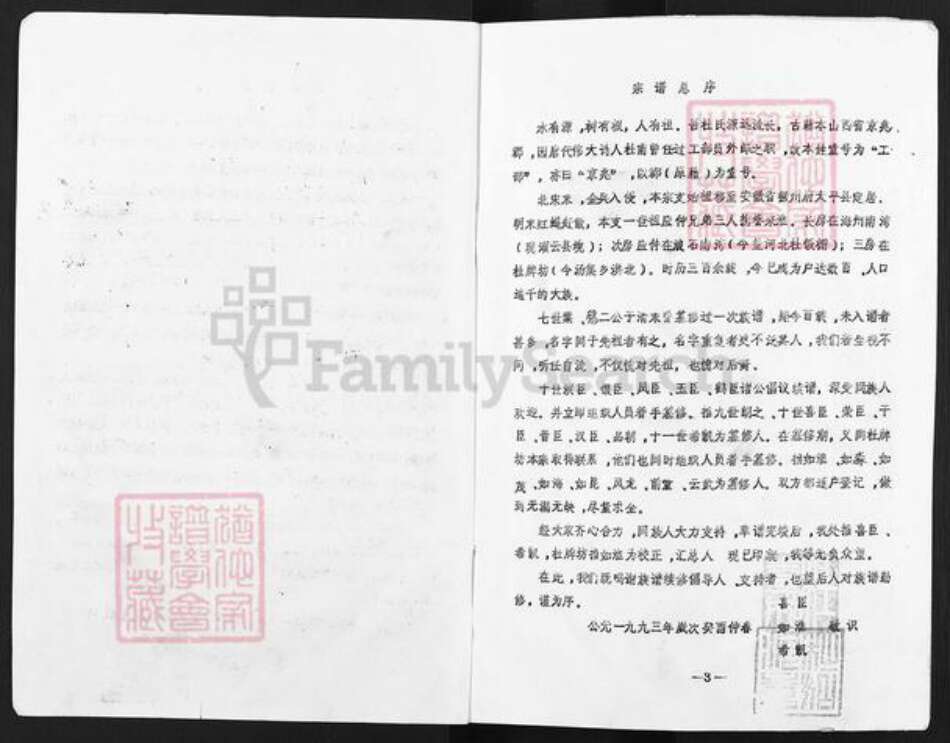 宗谱总序
水有源，树有根，人有祖。 杜氏源远流长，古籍本山西省京兆
郡，因唐代伟大诗人杜甫曾任过工部员外郎之职，故本姓堂号为“工
部”，亦曰“京兆”，以郡（原籍）为堂号。
北宋末，金兵入侵，本宗支始祖移至安徽省徽州府太平县定居。
明末红蝇 ，本支一世祖应仲兄弟三人携眷来淮。长房在海州南湾
（现灌云县境）；次房应付在 石南湾（今 河北杜 ）；三房在
杜牌坊（今汤集乡洪北）。时历三百余载，今已成为户达数百，人口
逾千的大族。
七世 、 二公于清末曾纂修过一次族谱，距今百载，未入谱者
甚多，名字同于先祖者有之，名字重复者更不泛其人，我们若坐视不
问，听任自流，不仅愧对先祖，也愧对后裔。
十世 臣、 臣、凤臣、玉臣、鹤臣诸公倡议续谱，深受同族人
欢迎。并立即组织人员着手纂修。推九世朝之、十世喜臣、荣臣、于
臣、晋臣、汉臣、品朝，十一世希凯为纂修人。在纂修期，又同杜牌
坊本家取得联系，他们也同时组织人员着手纂修。推如淮、如森、如
茂、如海、如昆、凤龙、前堂、云武为纂修人。双方都逐户登记，做
到无漏无缺，尽量求全。
经大家齐心合力，同族人大力支持，草谱完竣后，我处推喜臣、
希凯，杜牌坊推如淮为校正，汇总人 现已印 ，我等无负众望。
在此，我们既鸣谢族谱续修倡导人、支持者，也望后人对族谱勤
修，谨为序。
喜臣
公元一九九三年岁次癸酉仲春 如淮 敬识
希凯
—3—
FamilySearch
猶他家
譜學會
收藏